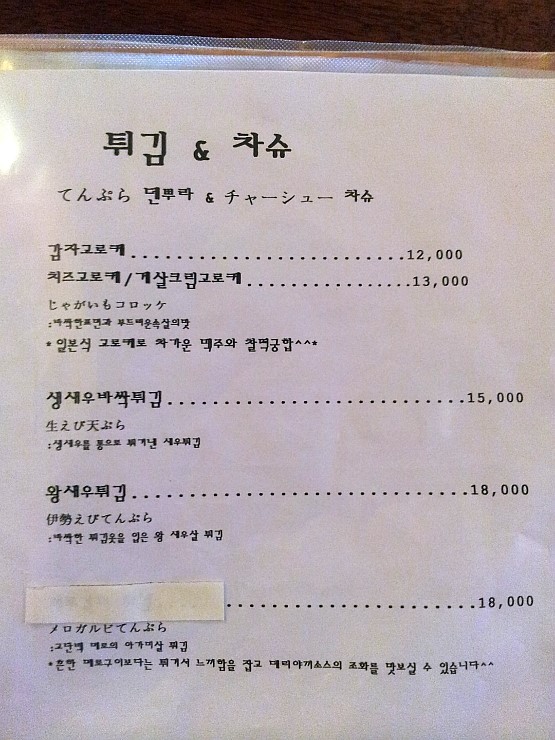 튀김 & 차슈
てんぷら 덴뿌라 & チャーシュー 차슈
감자고로케..........................12,000
치즈고로케/게살크림고로케................13,000
じゃがいもコロッケ
:바싹한표면과 부드러운속살의맛
*일본식 고로케로 차가운 맥주와 찰떡궁합^^*
생새우바싹튀김............................15,000
生えび天ぷら
:생새우를 통으로 튀겨낸 새우튀김
왕새우튀김................................18,000
伊勢えびてんぷら
:바싹한 튀김옷을 입은 왕 새우살 튀김
........................18,000
メロカルビてんぷら
:고단백 메로의 아가미살 튀김
*흔한 메로구이보다는 튀겨서 느끼함을 잡고 데리야끼소스의 조화를 맛보실 수 있습니다^^